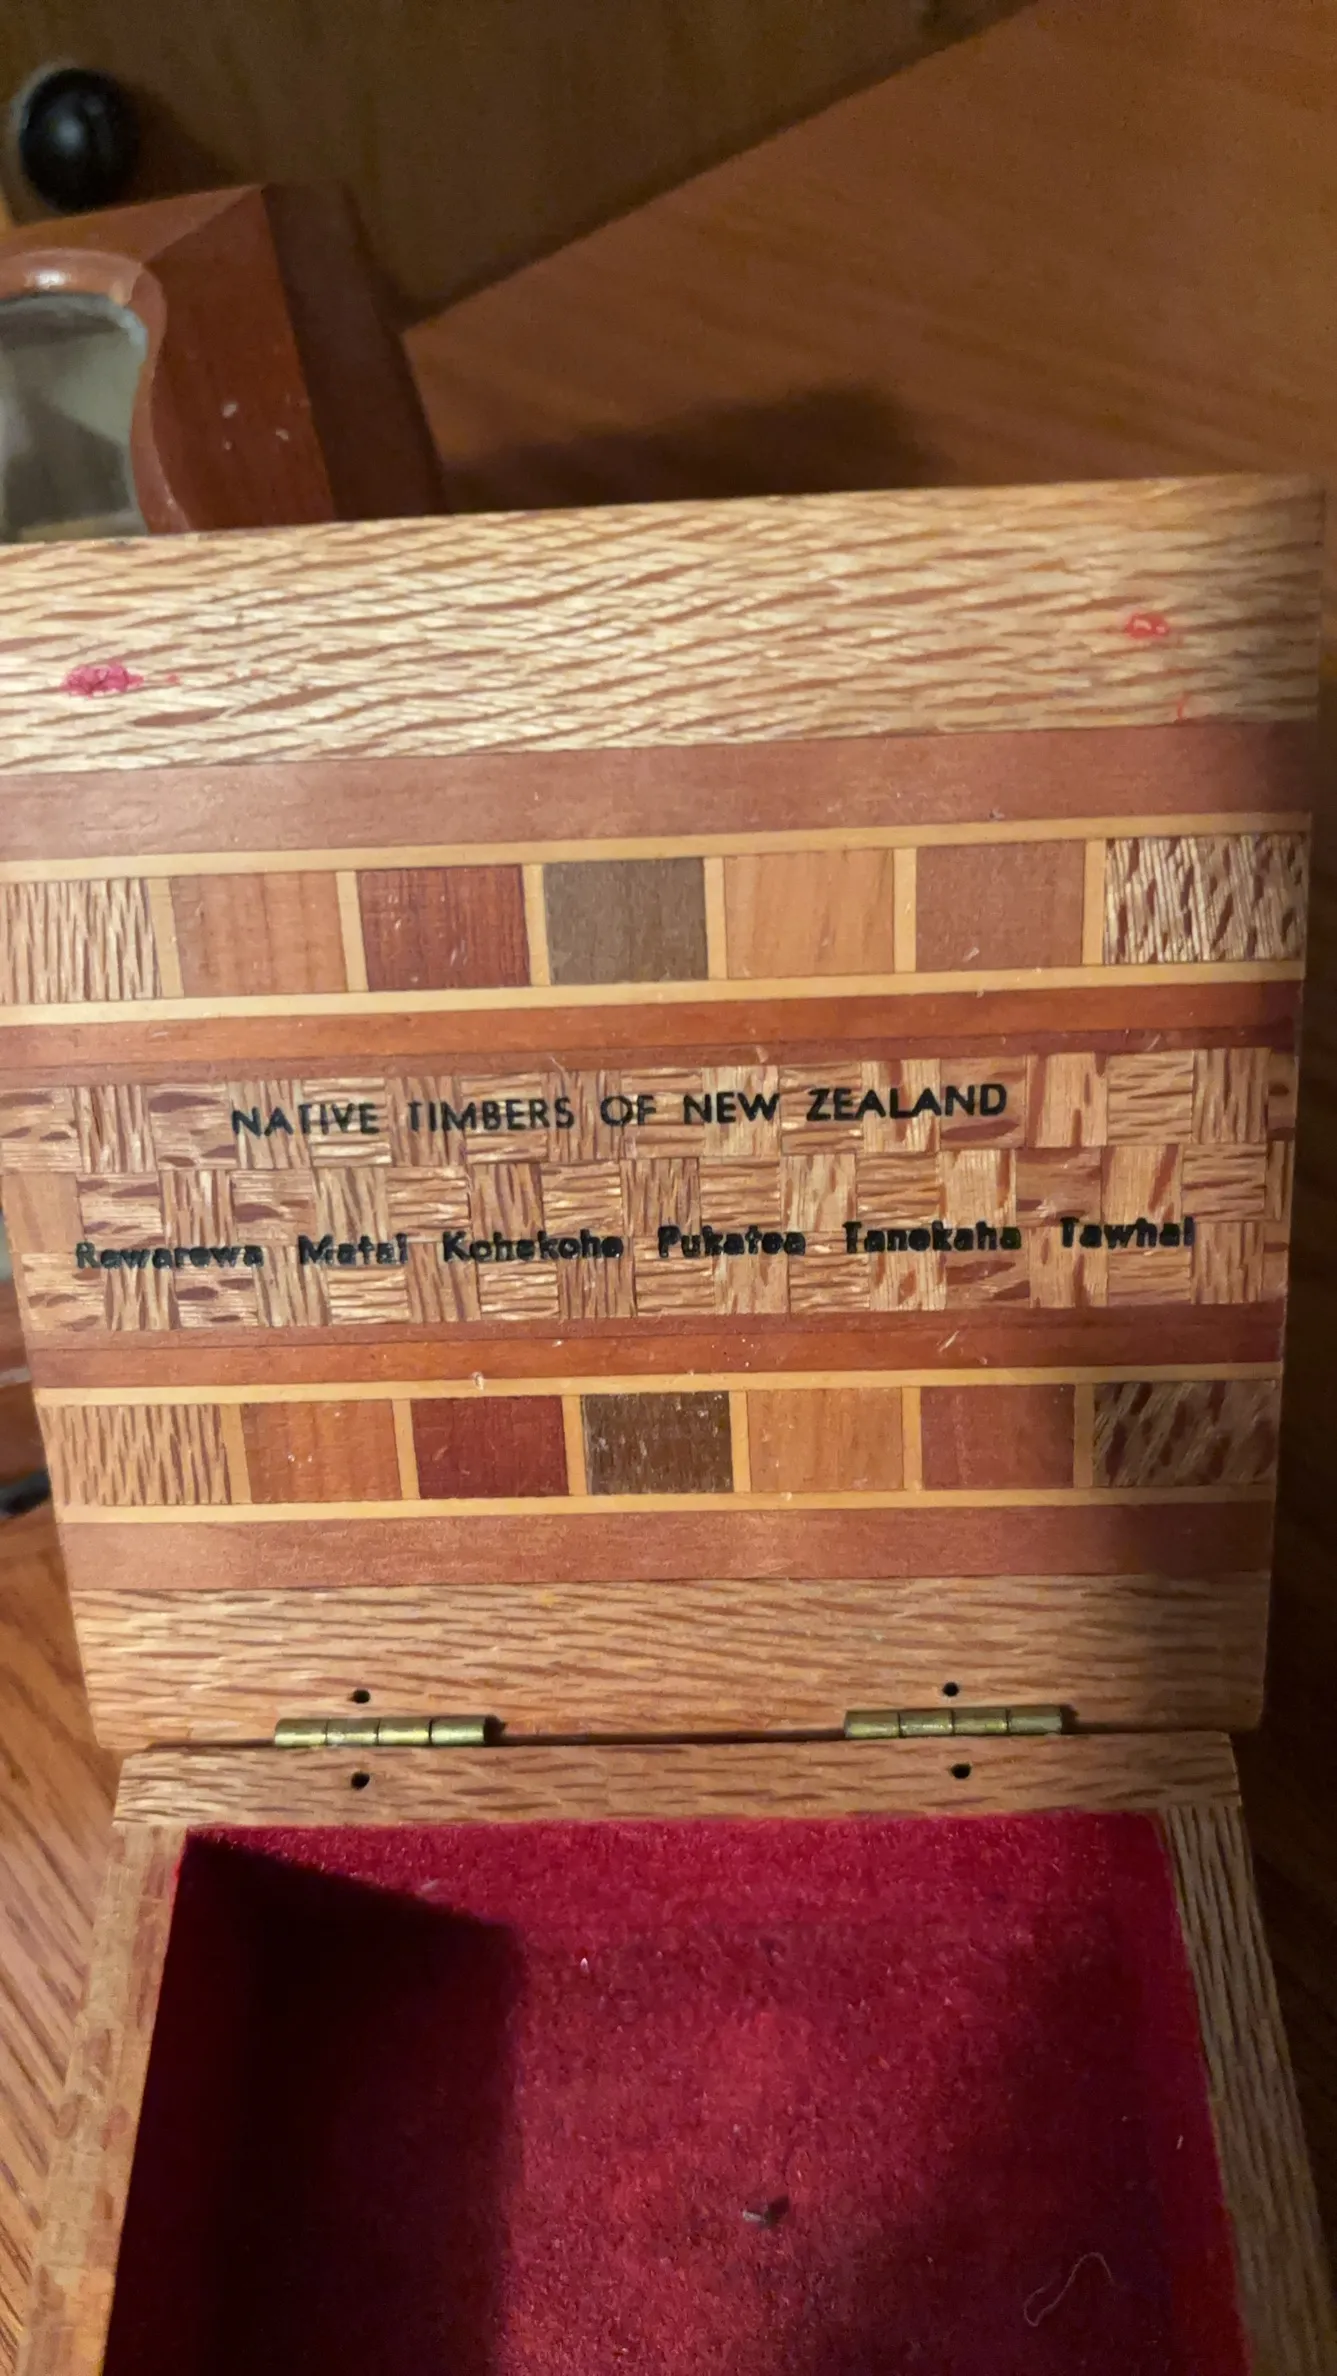 NATIVE TIMBERS OF NEW ZEALAND
Rewarewa Matai Kohekohe Pukatea Tanekaha Tawhai